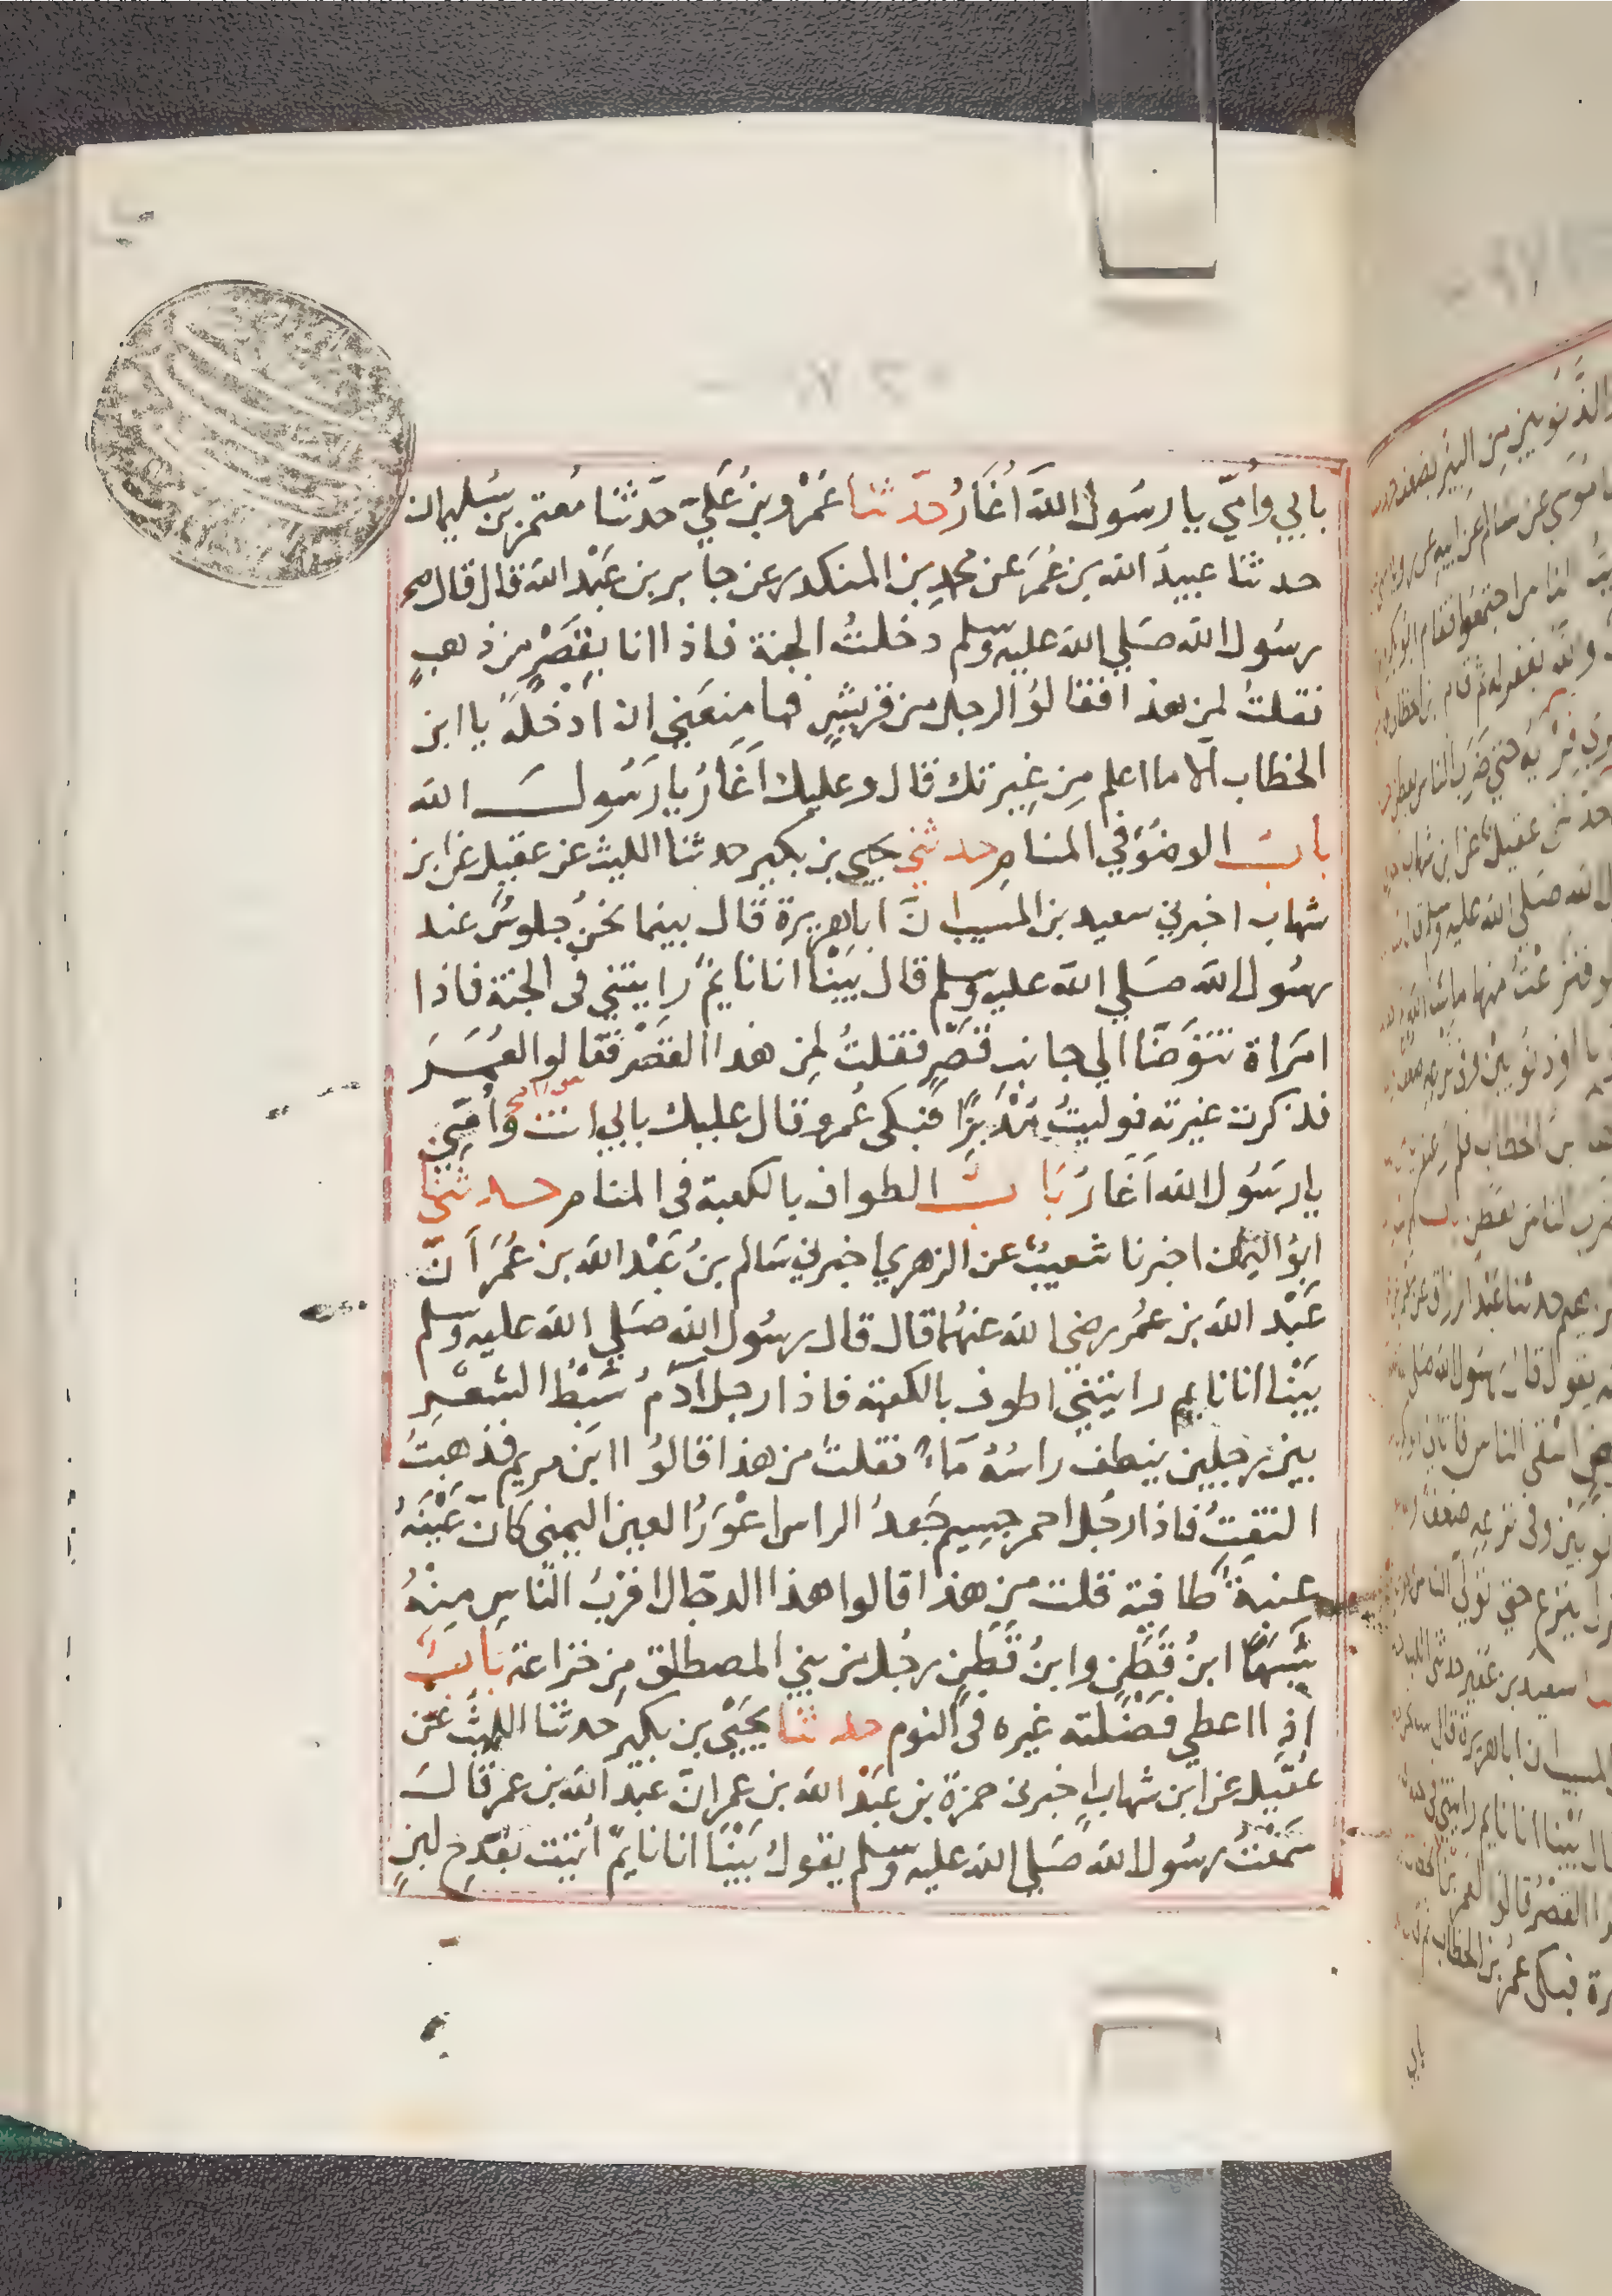 بابي وامّي يا رسُول اللهَ اَغَارُ حدّثنا عَمْرو بنُ عَليّ حدّثنا مُعتمر بن سُليمان
حدثنا عبيدُ الله بن عُمَرَ عن محمدِ بن المنكدر عن جابر بن عَبْد الله قال قال
رسُول الله صَلي الله عليه وسلم دخلتُ الجنة فاذا انا بقَصْرٍ من ذهبٍ
فقلتُ لمن هذا فقالوُا لرجل من قريشٍ فما منعَني ان ادْخُلَهُ يا ابن
الخطاب اِلّا ما اعلم مِن غيرتك قال وعليك اَغَارُ يا رَسُولَ الله
بابُ الوضوُء في المنامِ حدثني يحيى بن بكير حدثنا الليث عن عقيل عن ابن
شهاب اخبرني سعيد بن المسيب انَّ ابا هريرة قال بينما نحنُ جلوسٌ عند
رسُول الله صَلي الله عليه وسلم قال بَيْنَا انا نايمٌ رايتني في الجنة فاذا
امرَاة تتوَضّا الي جانب قصْرٍ فقلتُ لمن هذا القصْرُ فقالوا لعُمَرَ
فذكرت غيرته فوليتُ مُدْبِرًا فبكى عُمرُ وقال عليك بابي انت وأمّي
يا رسُول الله اَغَارُ بَابُ الطواف بالكعبة في المنام حدثنا
ابوُ اليمان اخبرنا شعيبٌ عن الزهري اخبرني سَالم بنُ عَبْد الله بن عُمَرَ اَنّ
عَبْد الله بن عُمَر رضي الله عنهُما قال قال رسُول الله صَلي الله عليه وسلم
بَيْنا انا نايم رايتني اطوف بالكعبة فاذا رجل آدَمُ سَبْطُ الشعْرِ
بين رجلين ينطف راسُهُ مَآءً فقلتُ من هذا قالوُا ابن مريم فذهبتُ
التفتُ فاذا رجُل احمر جسيم جَعدُ الراس اعْوَرُ العين اليمنى كانّ عَيْنَهُ
عنبةٌ طافية قلت من هذا قالوا هذا الدجال اقربُ النّاس منْهُ
شَبَهًا ابنُ قَطَنٍ وابنُ قَطَنٍ رجُل من بني المصطلق مِن خزاعة بابُ
اِذا اعطي فَضْلَته غيره في النوم حدثنا يحْيَى بن بكير حدثنا الليثُ عَن
عُقَيل عن ابن شهابٍ اخبرني حمزة بن عَبْد الله بن عمر انَّ عبْدَ الله بن عمر قالَ
سَمعْتُ رسُول الله صَلي الله عليه وسلم يقولُ بَيْنَا انا نايمٌ أُتيت بقدَحِ لبنٍ